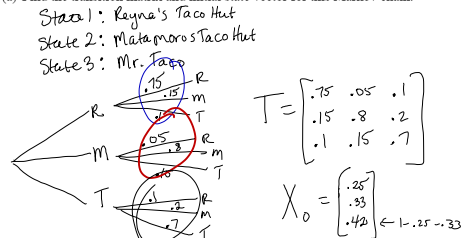 State 1: Reyna's Taco Hut
State 2: Matamoros Taco Hut
State 3: Mr. Taco
R
.75
.15
R
M
T
M
.05
.8
R
M
T
T
.1
.2
.7
R
M
T
T = [ .75 .05 .1
.15 .8 .2
.1 .15 .7 ]
X₀ = [ .25
.33
.42 ] ← 1-.25-.33